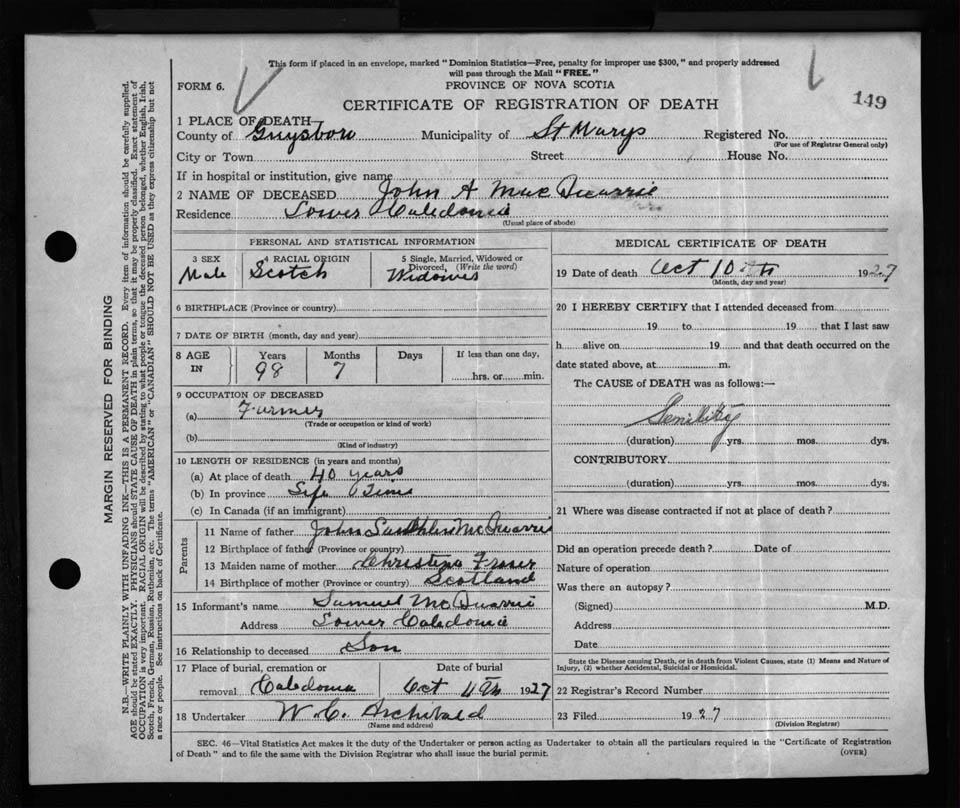 This form if placed in an envelope, marked "Dominion Statistics—Free, penalty for improper use $300," and properly addressed
will pass through the Mail "FREE."
FORM 6.
PROVINCE OF NOVA SCOTIA
149
CERTIFICATE OF REGISTRATION OF DEATH
1 PLACE OF DEATH
County of Guysboro Municipality of St Marys Registered No.
(For use of Registrar General only)
City or Town Street House No.
If in hospital or institution, give name
2 NAME OF DECEASED John A MacQuarrie
Residence Lower Caledonia
(Usual place of abode)
PERSONAL AND STATISTICAL INFORMATION
3 SEX 4 RACIAL ORIGIN 5 Single, Married, Widowed or Divorced, (Write the word)
Male Scotch Widower
6 BIRTHPLACE (Province or country)
7 DATE OF BIRTH (month, day and year)
8 AGE IN Years Months Days If less than one day,
98 7 hrs. or min.
9 OCCUPATION OF DECEASED
(a) Farmer
(Trade or occupation or kind of work)
(b)
(Kind of industry)
10 LENGTH OF RESIDENCE (in years and months)
(a) At place of death 40 years
(b) In province Life Time
(c) In Canada (if an immigrant)
Parents
11 Name of father John McQuarrie
12 Birthplace of father (Province or country)
13 Maiden name of mother Christena Fraser
14 Birthplace of mother (Province or country) Scotland
15 Informant's name Samuel McQuarrie
Address Lower Caledonia
16 Relationship to deceased Son
17 Place of burial, cremation or removal Caledonia Date of burial Oct 1927
18 Undertaker W. C. Archibald
(Name and address)
MEDICAL CERTIFICATE OF DEATH
19 Date of death Oct 10th 1927
(Month, day and year)
20 I HEREBY CERTIFY that I attended deceased from
19 to 19 that I last saw
h alive on 19 and that death occurred on the
date stated above, at m.
The CAUSE of DEATH was as follows:—
Senility
(duration) yrs. mos. dys.
CONTRIBUTORY
(duration) yrs. mos. dys.
21 Where was disease contracted if not at place of death?
Did an operation precede death? Date of
Nature of operation
Was there an autopsy?
(Signed) M.D.
Address
Date
State the Disease causing Death, or in death from Violent Causes, state (1) Means and Nature of
Injury, (2) whether Accidental, Suicidal or Homicidal.
22 Registrar's Record Number
23 Filed 1927
(Division Registrar)
SEC. 46—Vital Statistics Act makes it the duty of the Undertaker or person acting as Undertaker to obtain all the particulars required in the "Certificate of Registration
of Death" and to file the same with the Division Registrar who shall issue the burial permit. (OVER)
MARGIN RESERVED FOR BINDING
N.B.—WRITE PLAINLY WITH UNFADING INK—THIS IS A PERMANENT RECORD. Every item of information should be carefully supplied.
AGE should be stated EXACTLY. PHYSICIANS should STATE CAUSE OF DEATH in plain terms, so that it may be properly classified. Exact statement of
OCCUPATION is very important. RACIAL ORIGIN will be described by stating to what people or tongue the deceased person belonged, whether English, Irish,
Scotch, French, German, Russian, Ruthenian, etc. The terms "AMERICAN" or "CANADIAN" SHOULD NOT BE USED as they express citizenship but not
a race or people. See instructions on back of Certificate.